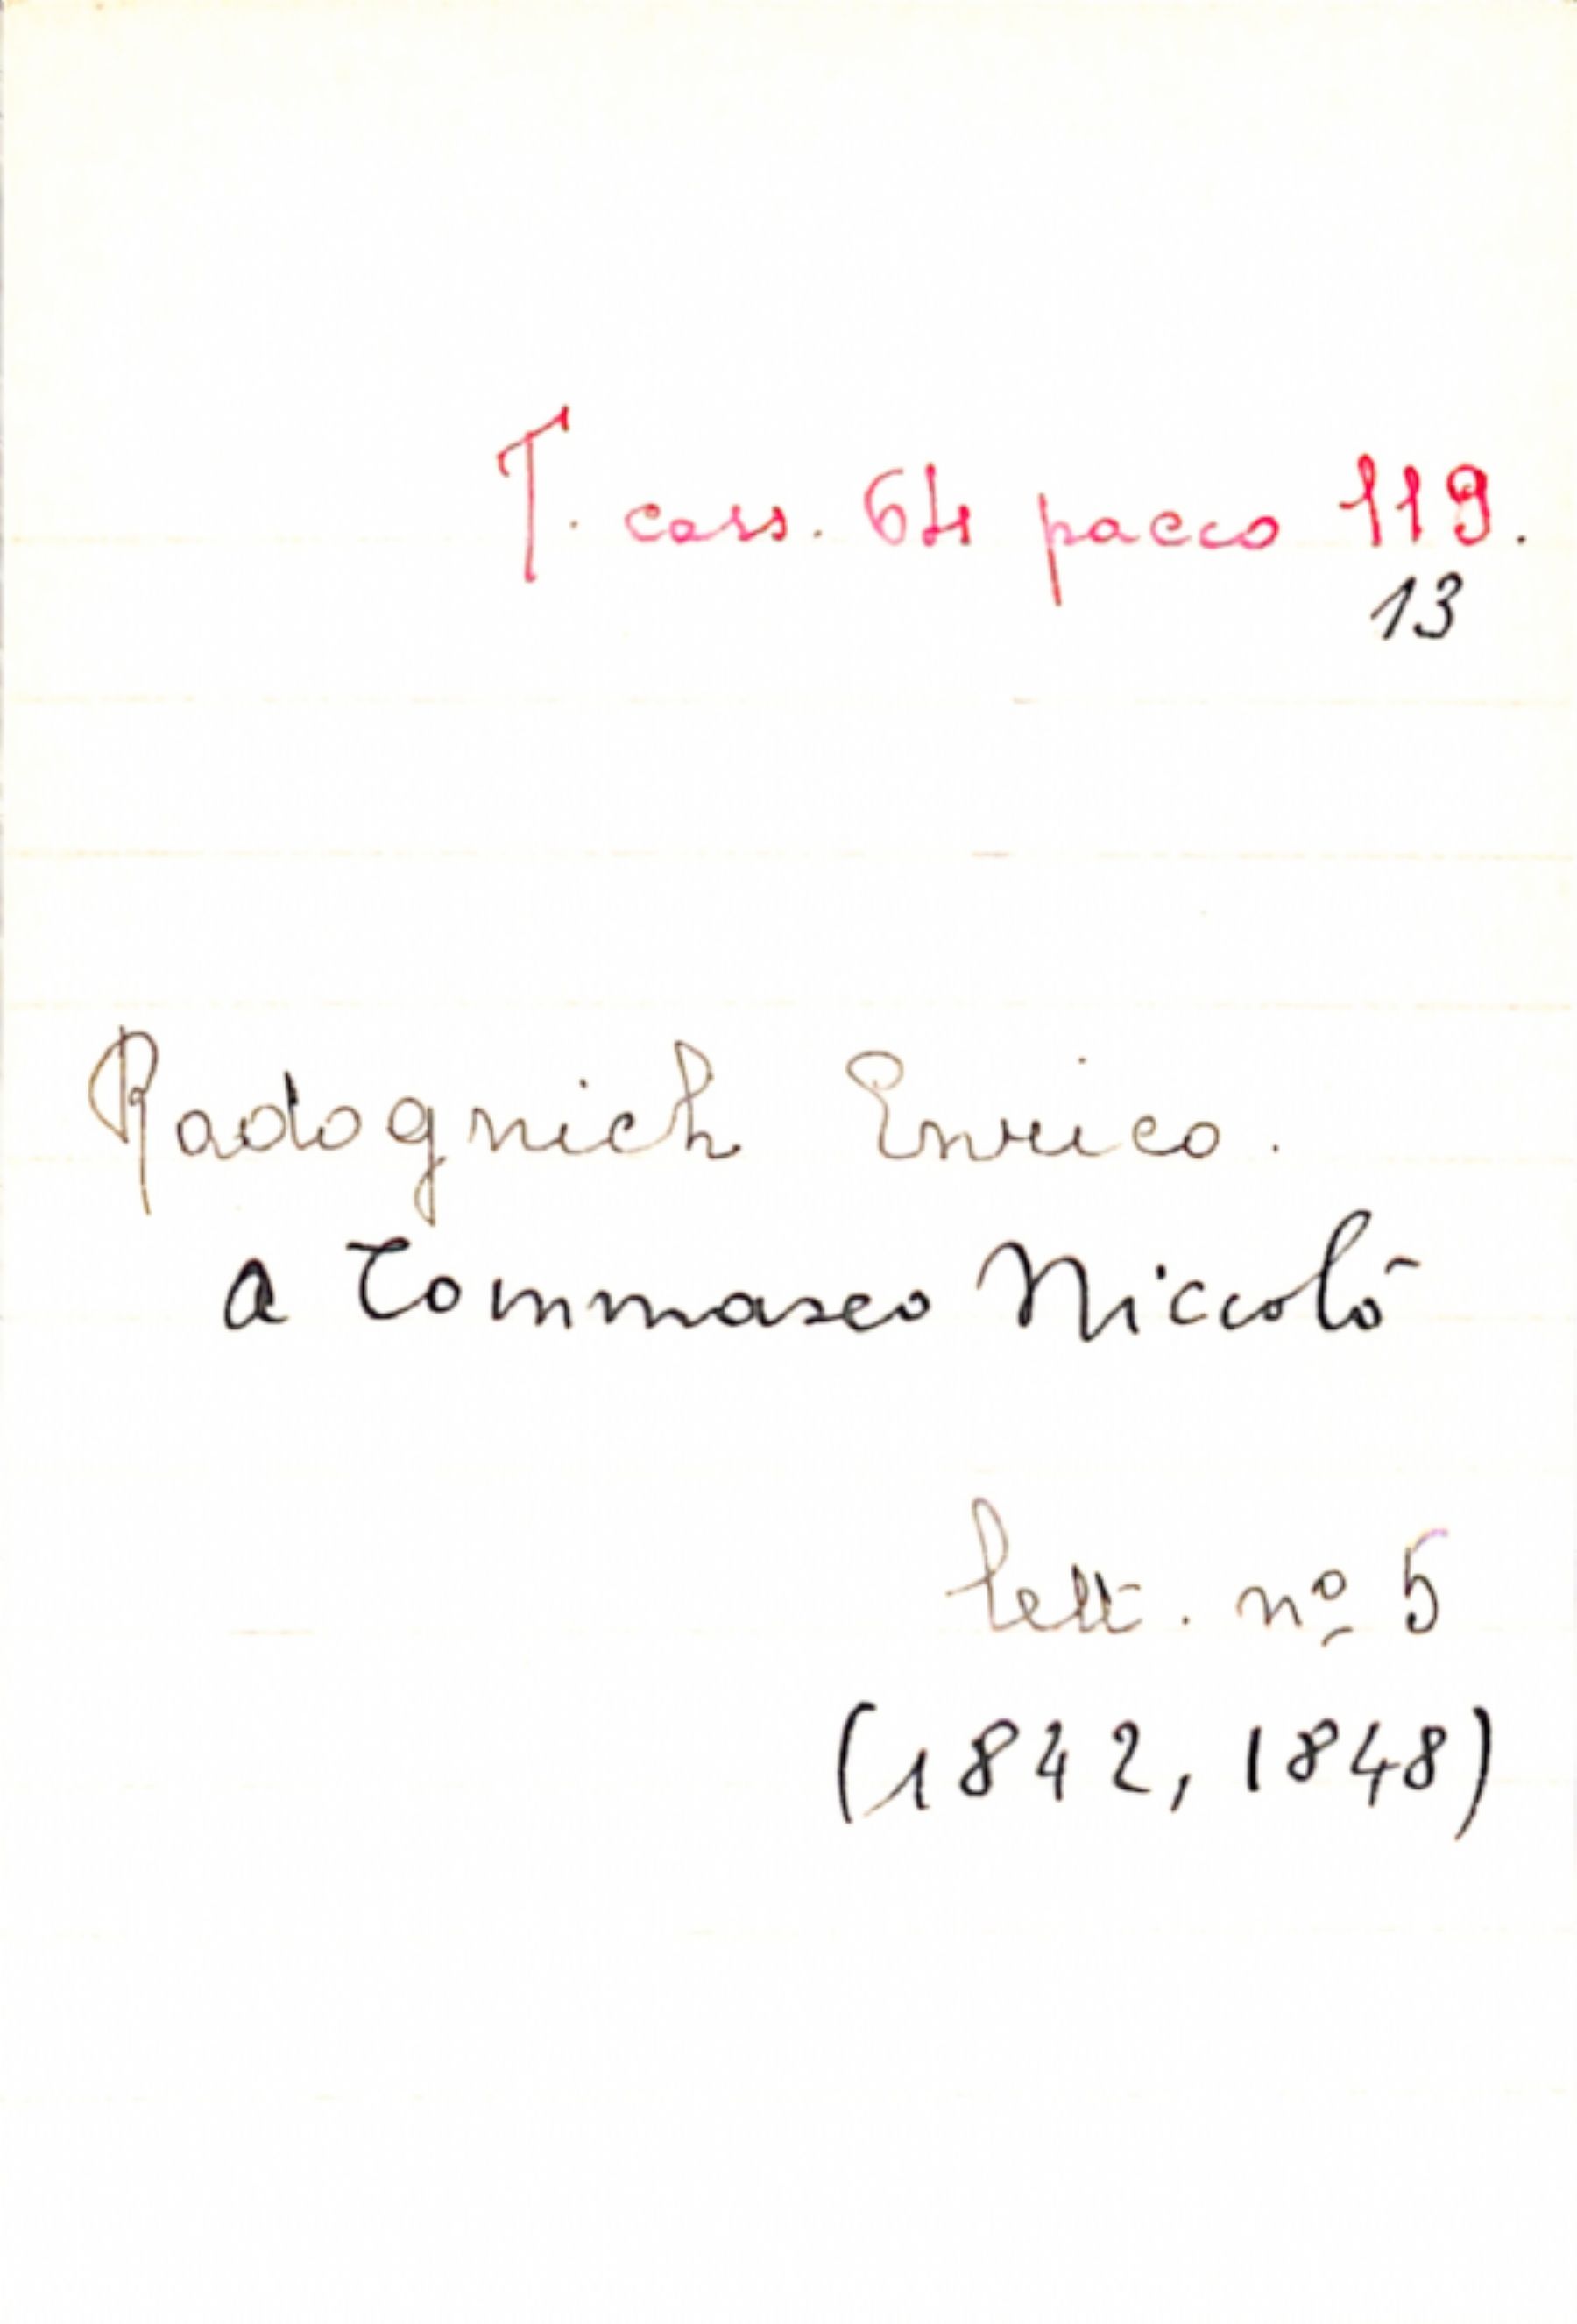 T. cass. 64 pacco 119.
13
Radognich Enrico.
a Tommaseo Niccolò
lett. nº 5
(1842, 1848)